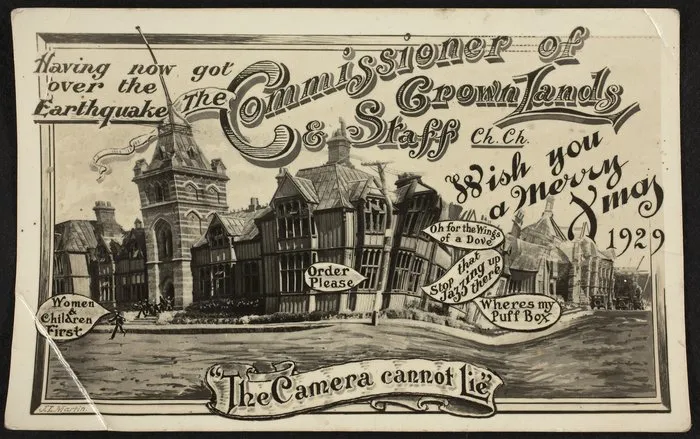 Having now got
over the
Earthquake
The Commissioner of
Crown Lands
& Staff Ch. Ch.
Wish you
a Merry
Xmas
1929
Oh for the Wings
of a Dove
Order
Please
Stop that
Jazzing up
there
Wheres my
Puff Box
Women
&
Children
First
"The Camera cannot Lie"
J.L. Martin.